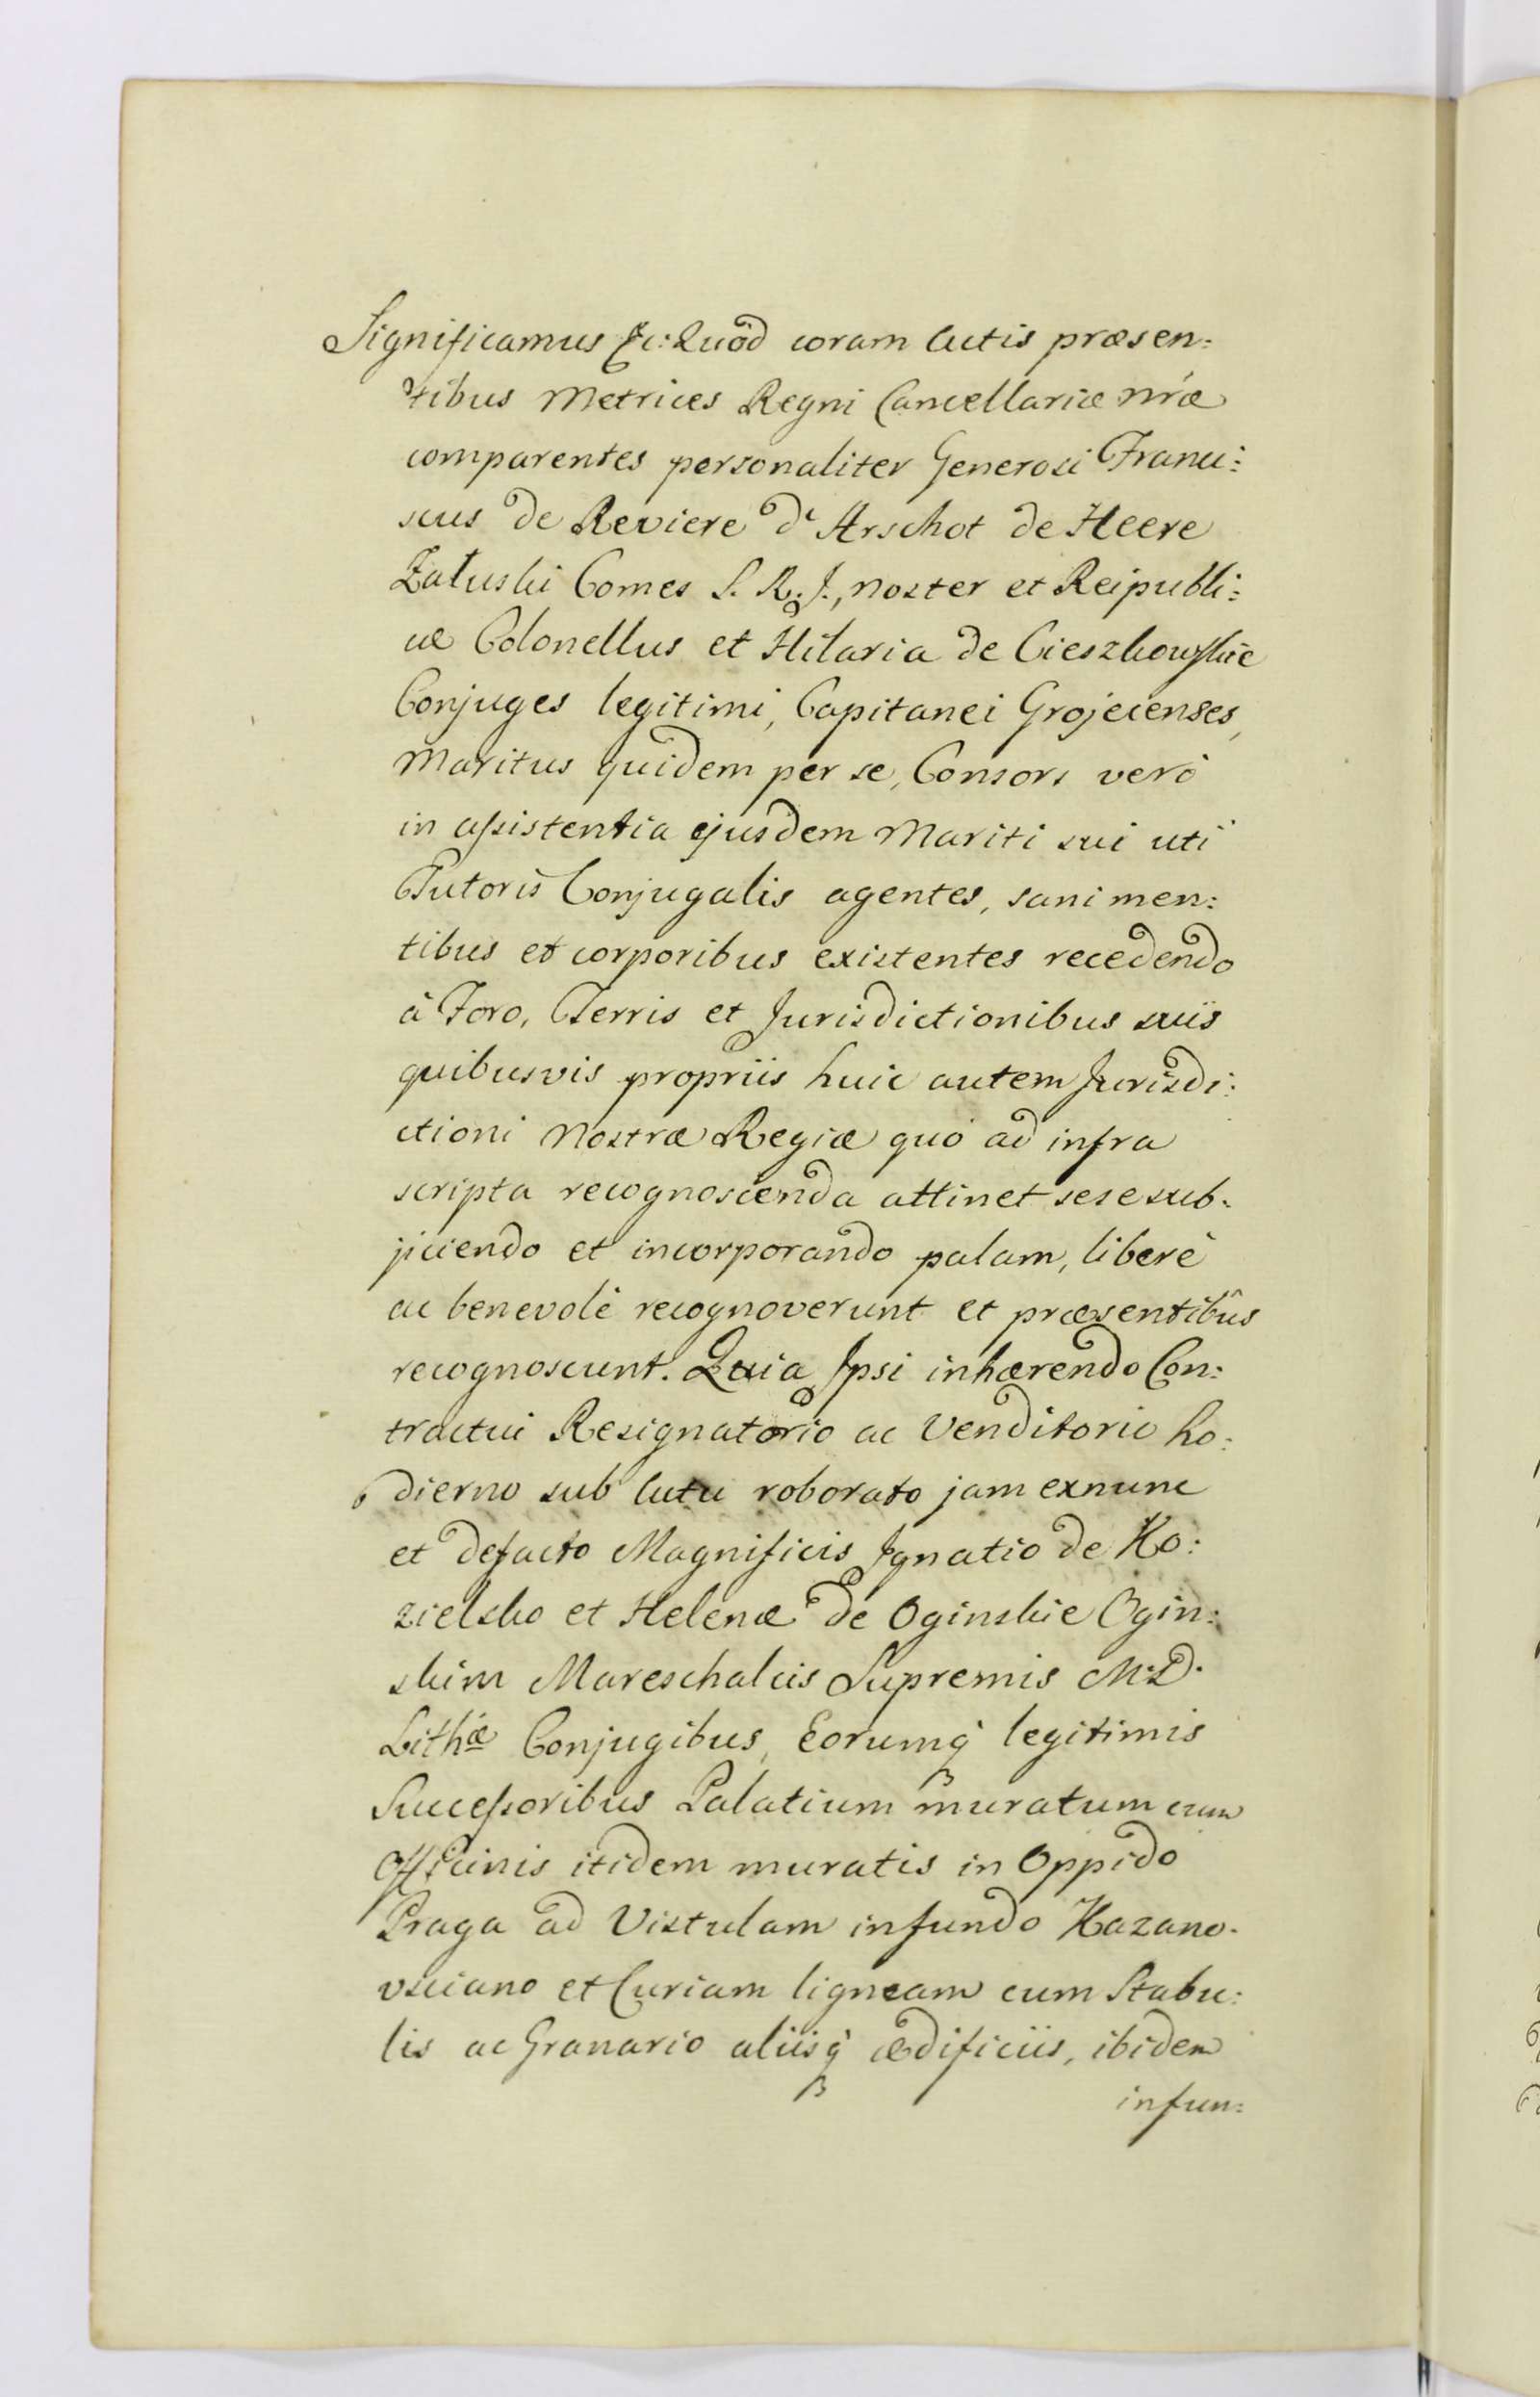 Significamus &c: Quod coram Actis præsen:
tibus Metrices Regni Cancellariæ Nræ
comparentes personaliter Generosi Franci:
scus de Reviere d'Arschot de Heere
Załuski Comes S. R. J., Noster et Reipubli:
cæ Colonellus et Hilaria de Cieszkowskie
Conjuges legitimi, Capitanei Grojecenses,
Maritus quidem per se, Consors verò
in assistentia ejusdem Mariti sui uti
Tutoris Conjugalis agentes, sani men:
tibus et corporibus existentes recedendo
à Foro, Terris et Jurisdictionibus suis
quibusvis propriis huic autem Jurisdi:
ctioni Nostræ Regiæ quò ad infra
scripta recognoscenda attinet sese sub:
jiciendo et incorporando palam, liberè
ac benevolè recognoverunt et præsentibûs
recognoscunt. Quia Ipsi inhærendo Con:
tractui Resignatorio ac Venditorio ho:
dierno sub Actu roborato jam exnunc
et defacto Magnificis Ignatio de Ko:
zielsko et Helenæ de Oginskie Ogin:
skim Mareschalcis Supremis M. D.
Lithæ Conjugibus, Eorumq́ legitimis
Successoribus Palatium muratum cum
Officinis itidem muratis in Oppido
Praga ad Vistulam infundo Kazano:
vsciano et Curiam ligneam cum Stabu:
lis ac Granario aliisq́ ædificiis, ibidem
infun: